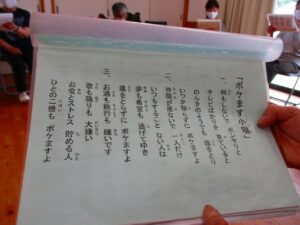 「ボケます小唄」
一、何もしないで ボンヤリと
テレビばかりを 見ていると
のんきのようでも 歳をとり
いつか知らずに ボケますよ
二、仲間が居ないで 一人だけ
いつもすること ない人は
夢も希望も 逃げてゆき
歳をとらずに ボケますよ
三、お酒も旅行も 嫌いです
歌も踊りも 大嫌い
お金とストレス 貯める人
ひとの二倍も ボケますよ